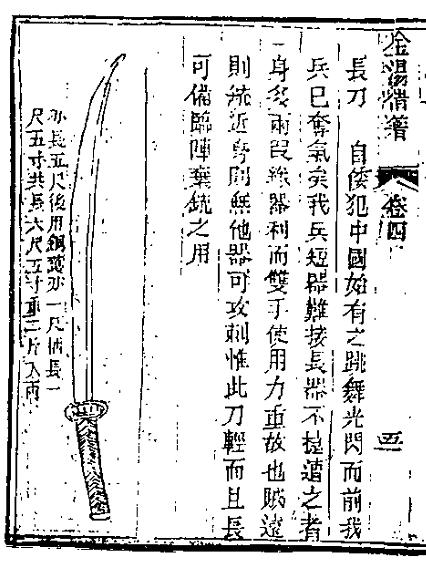 金湯借箸
卷四
五
長刀 自倭犯中國始有之跳舞光閃而前我
兵已奪氣矣我兵短器難接長器不捷遭之者
身多兩段緣器利而雙手使用力重故也賊遠
則銃近身則無他器可攻刺惟此刀輕而且長
可備臨陣棄銃之用
刃長五尺後用銅護刃一尺柄長一
尺五寸共長六尺五寸重二斤八兩